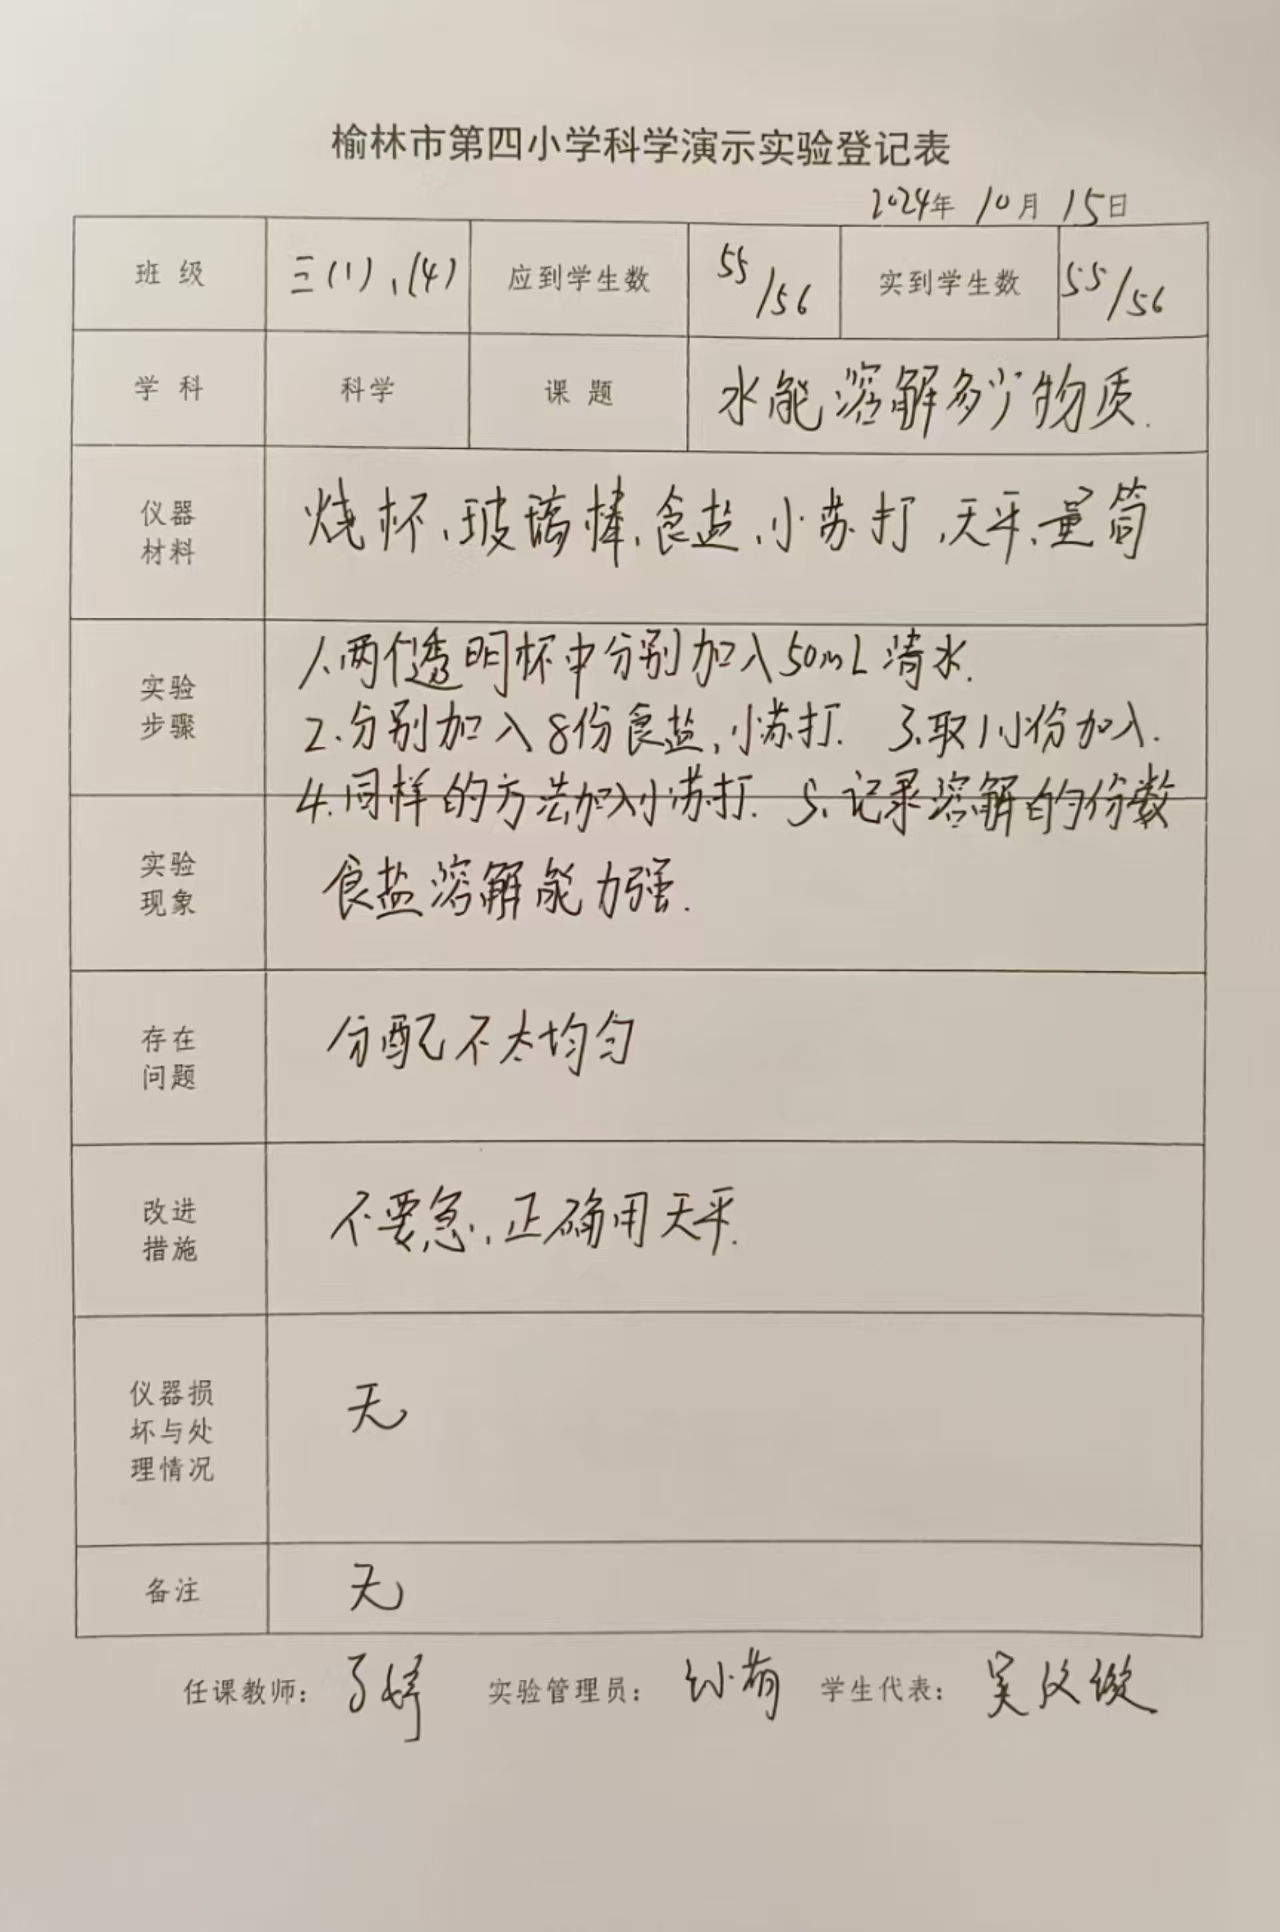 榆林市第四小学科学演示实验登记表
2024年 10月 15日
班 级 三(1)、(4) 应到学生数 55/56 实到学生数 55/56
学 科 科学 课 题 水能溶解多少物质.
仪器
材料
烧杯、玻璃棒、食盐、小苏打、天平、量筒
实验
步骤
1.两个透明杯中分别加入50mL清水.
2.分别加入8份食盐,小苏打. 3.取1小份加入.
4.同样的方法加入小苏打. 5.记录溶解的份数
实验
现象
食盐溶解能力强.
存在
问题
分配不太均匀
改进
措施
不要急,正确用天平.
仪器损
坏与处
理情况
无
备注 无
任课教师: 实验管理员: 学生代表: